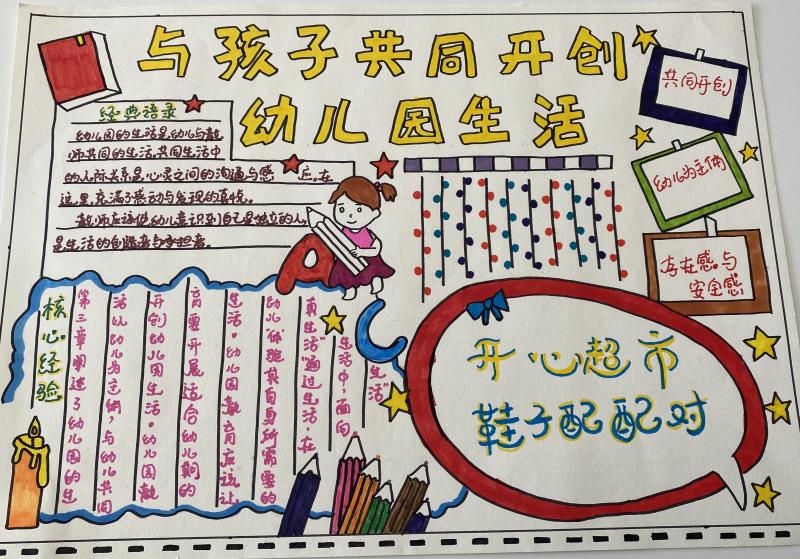 与孩子共同开创
幼儿园生活
经典语录
幼儿园的生活是幼儿与教
师共同的生活,共同生活中
的人际关系是心灵之间的沟通与感应。在
这里,充满了感动与发现的喜悦。
教师应该使幼儿意识到自己是独立的人,
是生活的创造者与承担者。
共同开创
幼儿为主体
存在感与
安全感
核心经验
第三章阐述了幼儿园的生
活以幼儿为主体,与幼儿共同
开创幼儿园生活。幼儿园教
育要开展适合幼儿期的
生活。幼儿园教育应该让
幼儿“体验其自身所需要的
真生活”“通过生活,在
生活中,面向
生活”
开心超市
鞋子配配对